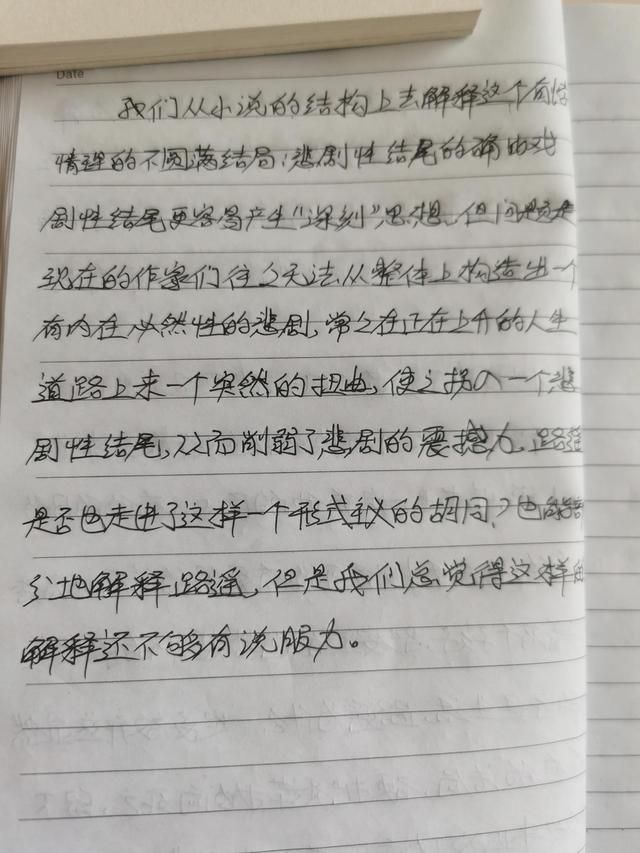 Date
我们从小说的结构上去解释这个有悖
情理的不圆满结局:悲剧性结尾的确比戏
剧性结尾更容易产生"深刻"思想。但问题是
现在的作家们往々无法从整体上构造出一个
有内在必然性的悲剧,常々在正在上升的人生
道路上来一个突然的扭曲,使之拐入一个悲
剧性结尾,从而削弱了悲剧的震撼力。路遥
是否也走进了这样一个形式主义的胡同?也能部
分地解释路遥,但是我们总觉得这样的
解释还不够有说服力。